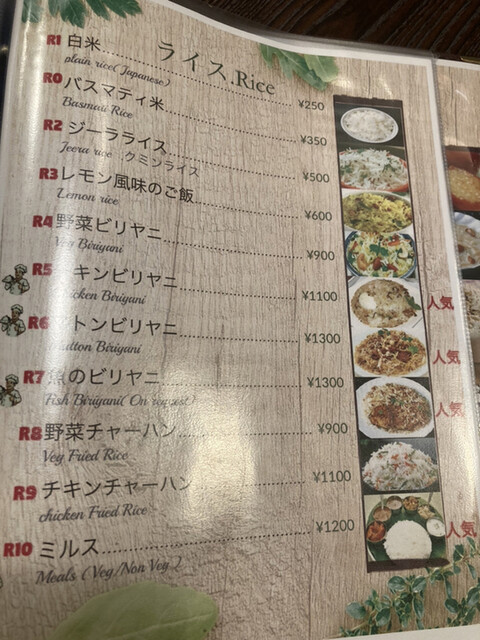 ライス Rice
R1 白米 ¥250
plain rice (Japanese)
R0 バスマティ米 ¥350
Basmati Rice
R2 ジーラライス ¥500
Jeera rice クミンライス
R3 レモン風味のご飯 ¥600
Lemon rice
R4 野菜ビリヤニ ¥900
Veg Biriyani
R5 キンビリヤニ ¥1100
Chicken Biriyani
人気
R6 トンビリヤニ ¥1300
Mutton Biriyani
人気
R7 魚のビリヤニ ¥1300
Fish Biriyani (On request)
人気
R8 野菜チャーハン ¥900
Veg Fried Rice
R9 チキンチャーハン ¥1100
chicken Fried Rice
R10 ミルス ¥1200
Meals (Veg/Non Veg.)
人気